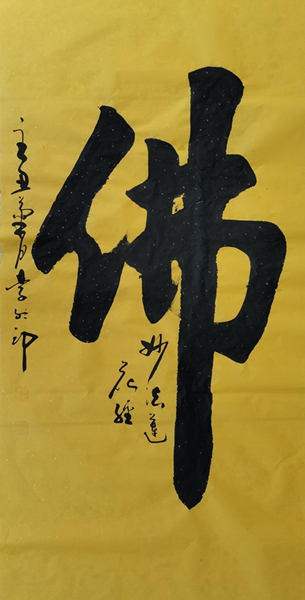 佛
妙法蓮
花經
辛丑 月李 印